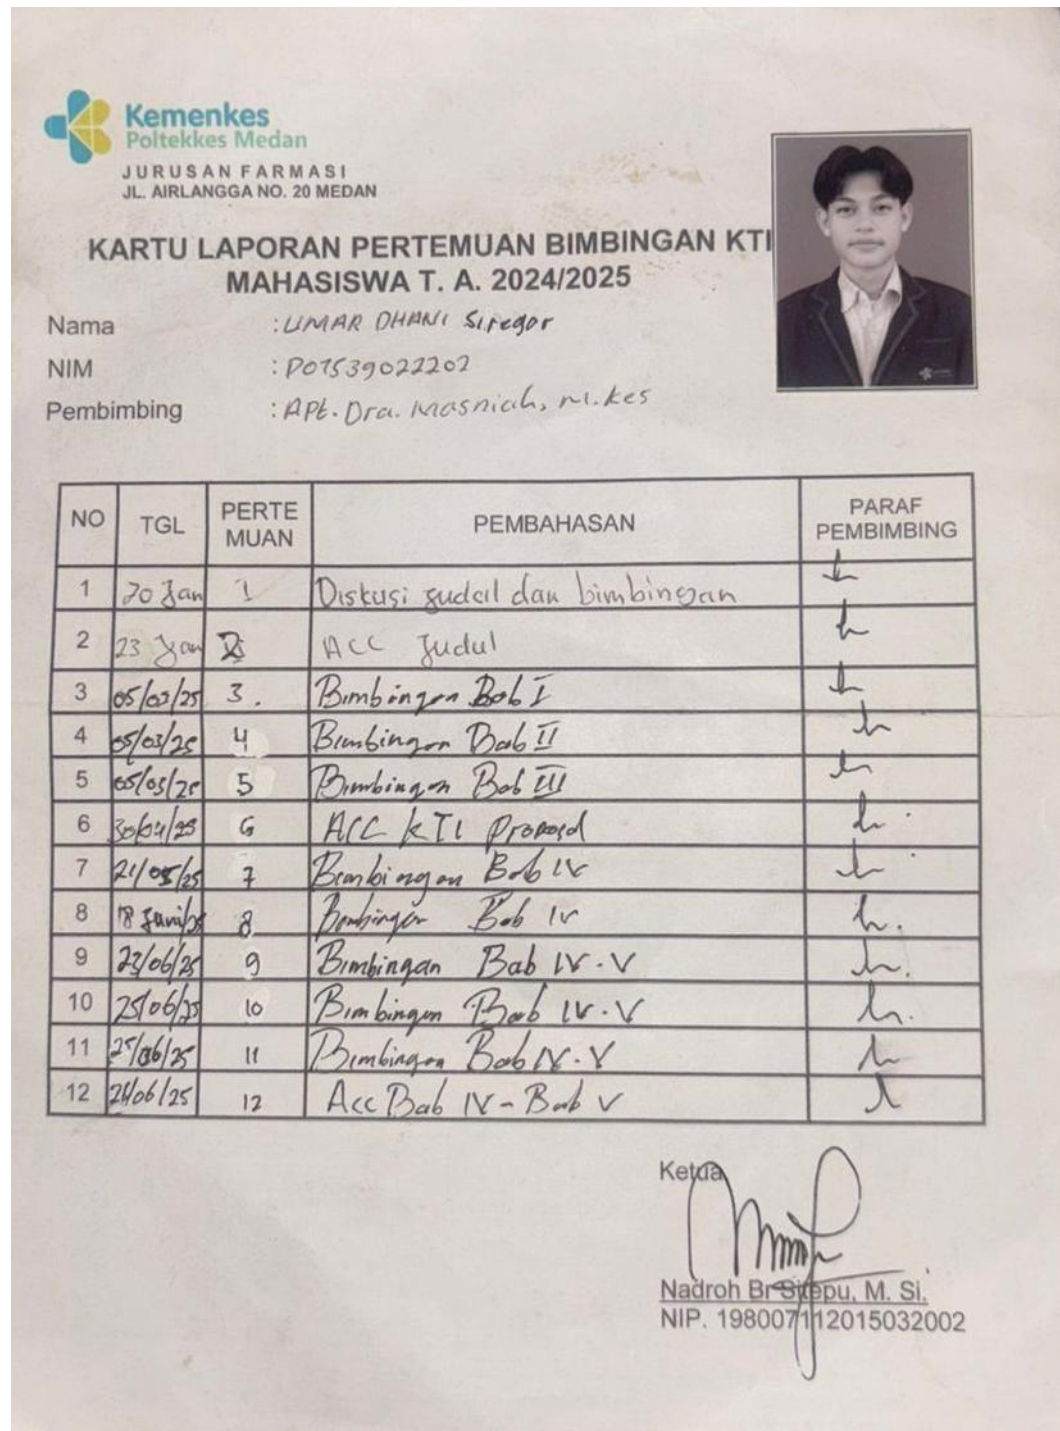 Kemenkes
Poltekkes Medan
JURUSAN FARMASI
JL. AIRLANGGA NO. 20 MEDAN
KARTU LAPORAN PERTEMUAN BIMBINGAN KTI
MAHASISWA T. A. 2024/2025
Nama : UMAR DHANI Siregar
NIM : P07539022202
Pembimbing : Apt. Dra. Masniah, M.Kes
NO TGL PERTE MUAN PEMBAHASAN PARAF PEMBIMBING
1 20 Jan 1 Diskusi judul dan bimbingan
2 23 Jan ACC Judul
3 05/03/25 3. Bimbingan Bab I
4 05/03/25 4 Bimbingan Bab II
5 05/03/25 5 Bimbingan Bab III
6 30/04/25 6 ACC KTI Proposal
7 21/05/25 7 Bimbingan Bab IV
8 18 Juni/25 8 Bimbingan Bab IV
9 23/06/25 9 Bimbingan Bab IV. V
10 25/06/25 10 Bimbingan Bab IV. V
11 25/06/25 11 Bimbingan Bab IV. V
12 /06/25 12 Acc Bab IV - Bab V
Ketua
Nadroh Br Sitepu, M. Si.
NIP. 198007112015032002